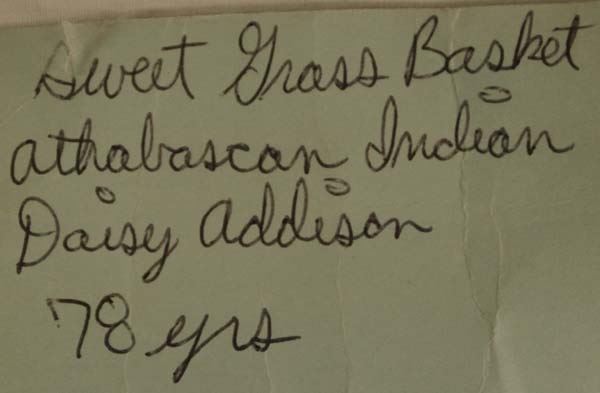 Sweet Grass Basket
athabascan Indian
Daisy Addison
78 yrs